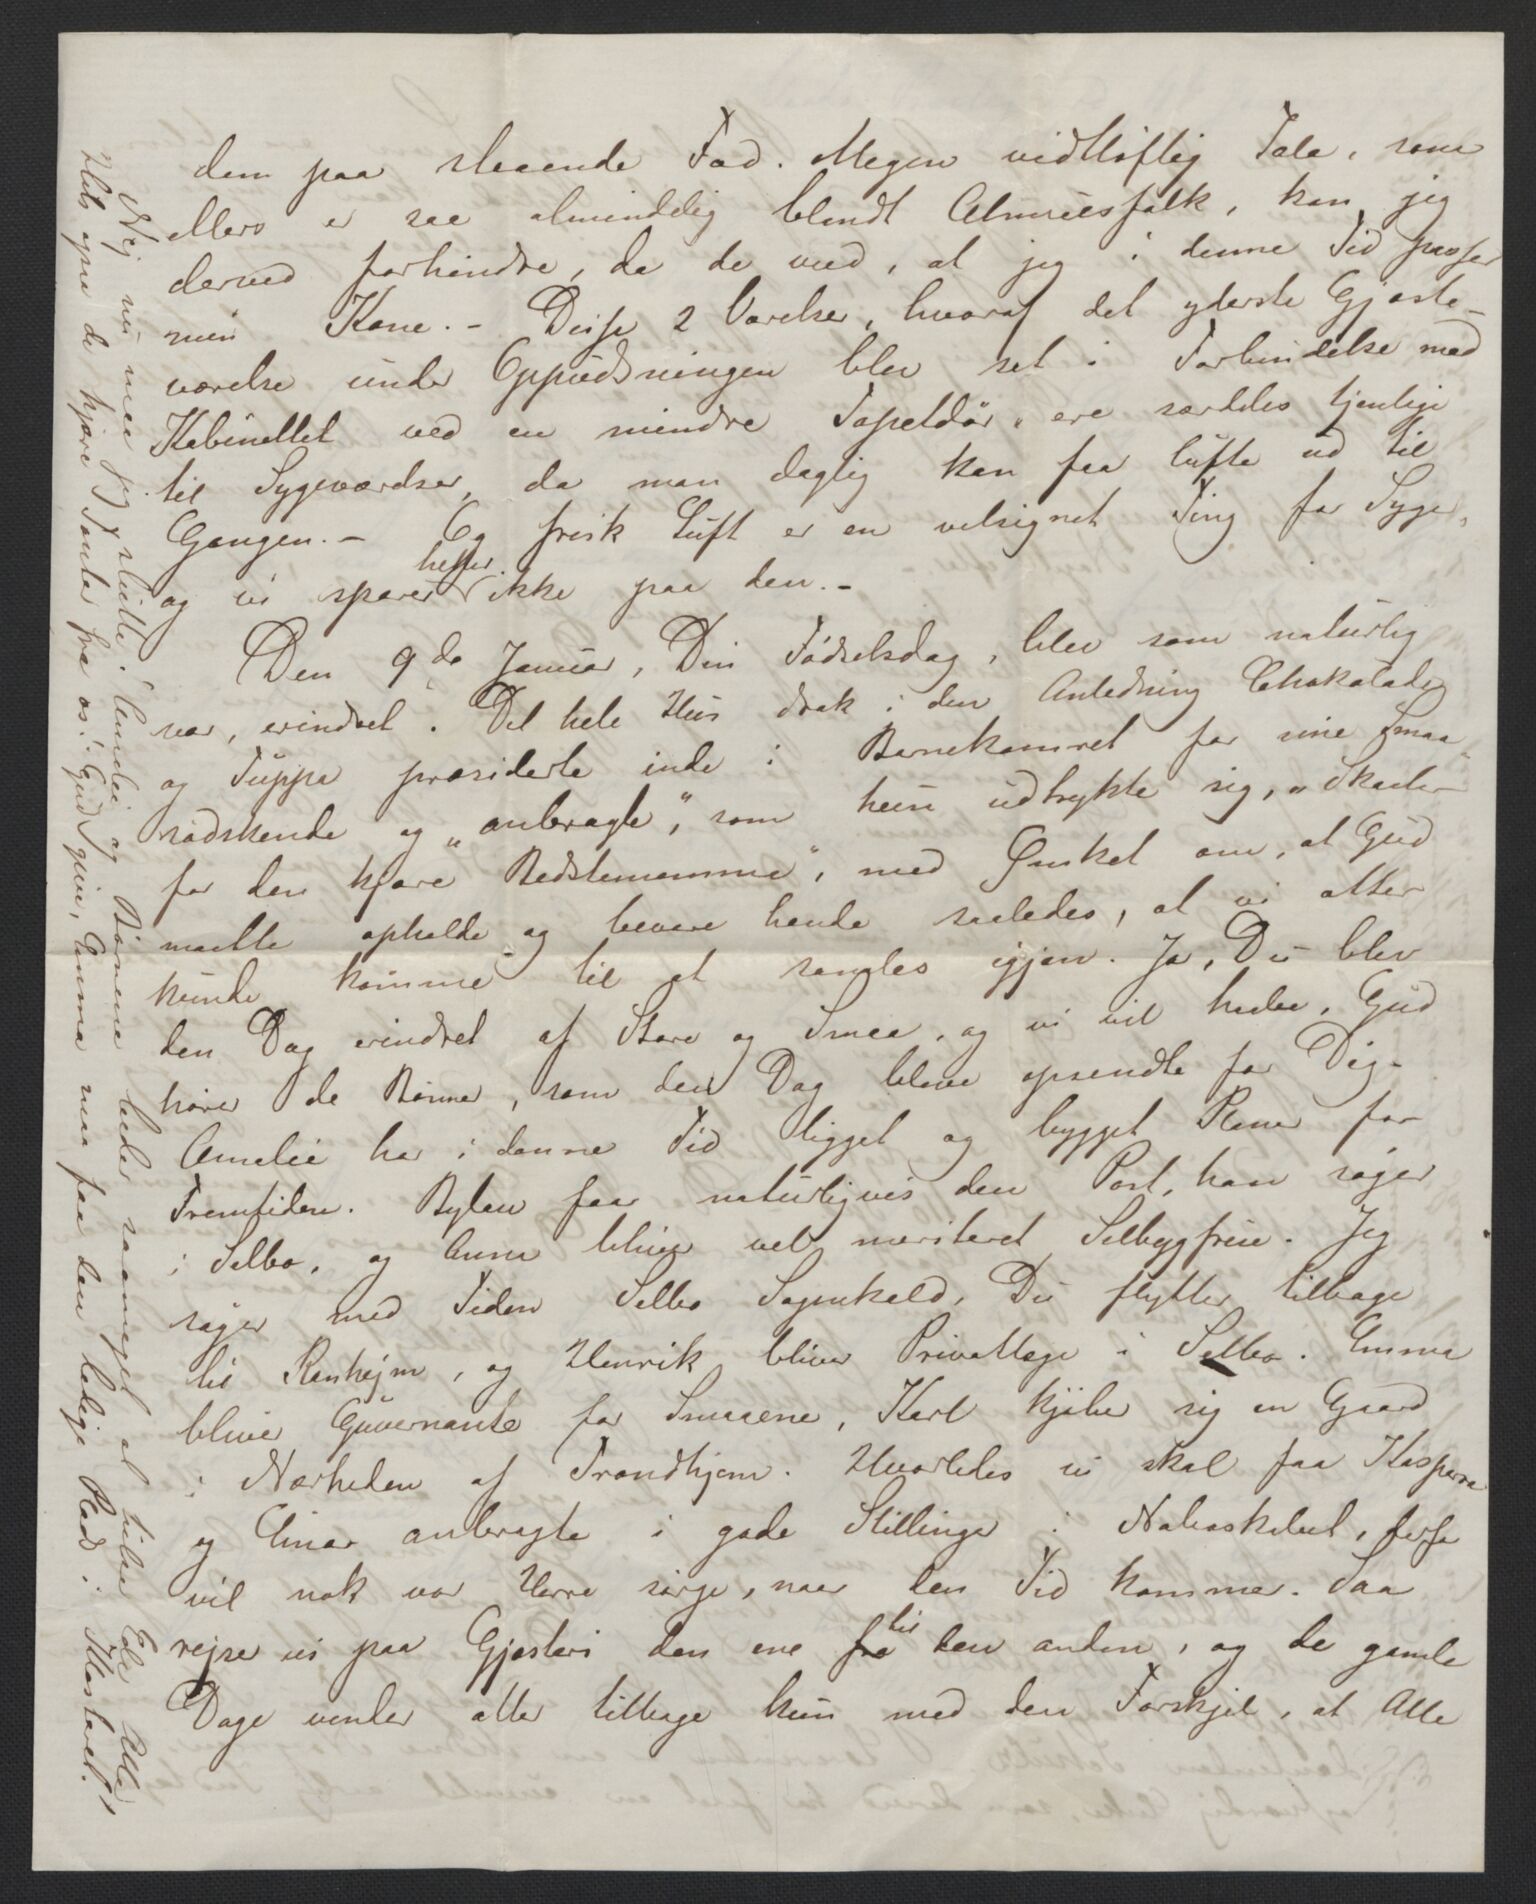 dem paa staaende Fod. Megen vidtløftig Tale, som
ellers er saa almindelig blandt Almuesfolk, kan jeg
derved forhindre, da de veed, at jeg i denne Tid passer
min Kone. – Disse 2 Værelser, hvoraf det yderste Gjæste-
værelse under Oppudsningen blev sat i Forbindelse med
Kabinettet ved en mindre Tapetdør, ere særdeles tjenlige
til Sygeværelser, da man daglig kan faa lufte ud til
Gangen. – Og frisk Luft er en velsignet Ting for Syge,
og vi sparer heller ikke paa den. –
Den 9de Januar, Din Fødselsdag, blev som naturlig
var, erindret. Det hele Hus drak i den Anledning Chokolade
og Tuppa præsiderte inde i Barnekamret for sine Smaa-
södskende og „anbragte", som hun udtrykte sig, „Skaaler
for den kjære Bedstemamma", med Ønsket om, at Gud
maatte opholde og bevare hende saaledes, at vi atter
kunde komme til at samles igjen. Ja, Du blev
den Dag erindret af Store og Smaa, og vi vil haabe, Gud
hører de Bønner, som den Dag bleve opsendte for Dig.
Amalie har i denne Tid ligget og bygget Planer for
Fremtiden. Bylow faar naturligvis den Post, han søger
i Selbo, og Anna bliver vel meriteret Selbygfrue. Jeg
søger med Tiden Selbo Sognekald, Du flytter tilbage
til Ranhejm, og Henrik bliver Privatlæge i Selbo. Emma
bliver Guvernante for Smaaene, Karl kjøber sig en Gaard
i Nærheden af Trondhjem. Hvorledes vi skal faa Kaspara
og Einar anbragte i gode Stillinger i Naboskabet, derfor
vil nok vor Herre sørge, naar den Tid kommer. Saa
rejse vi paa Gjesteri den ene fra til den anden, og de gamle
Dage vender atter tilbage kun med den Forskjel, at Alle
Nej, nu maa jeg slutte. Amalie og Børnene beder saameget at hilse Eder Alle.
Hils ogsaa de kjære Tanter fra os! Gud give, Emma maa faa den ledige Plads i Klosteret.